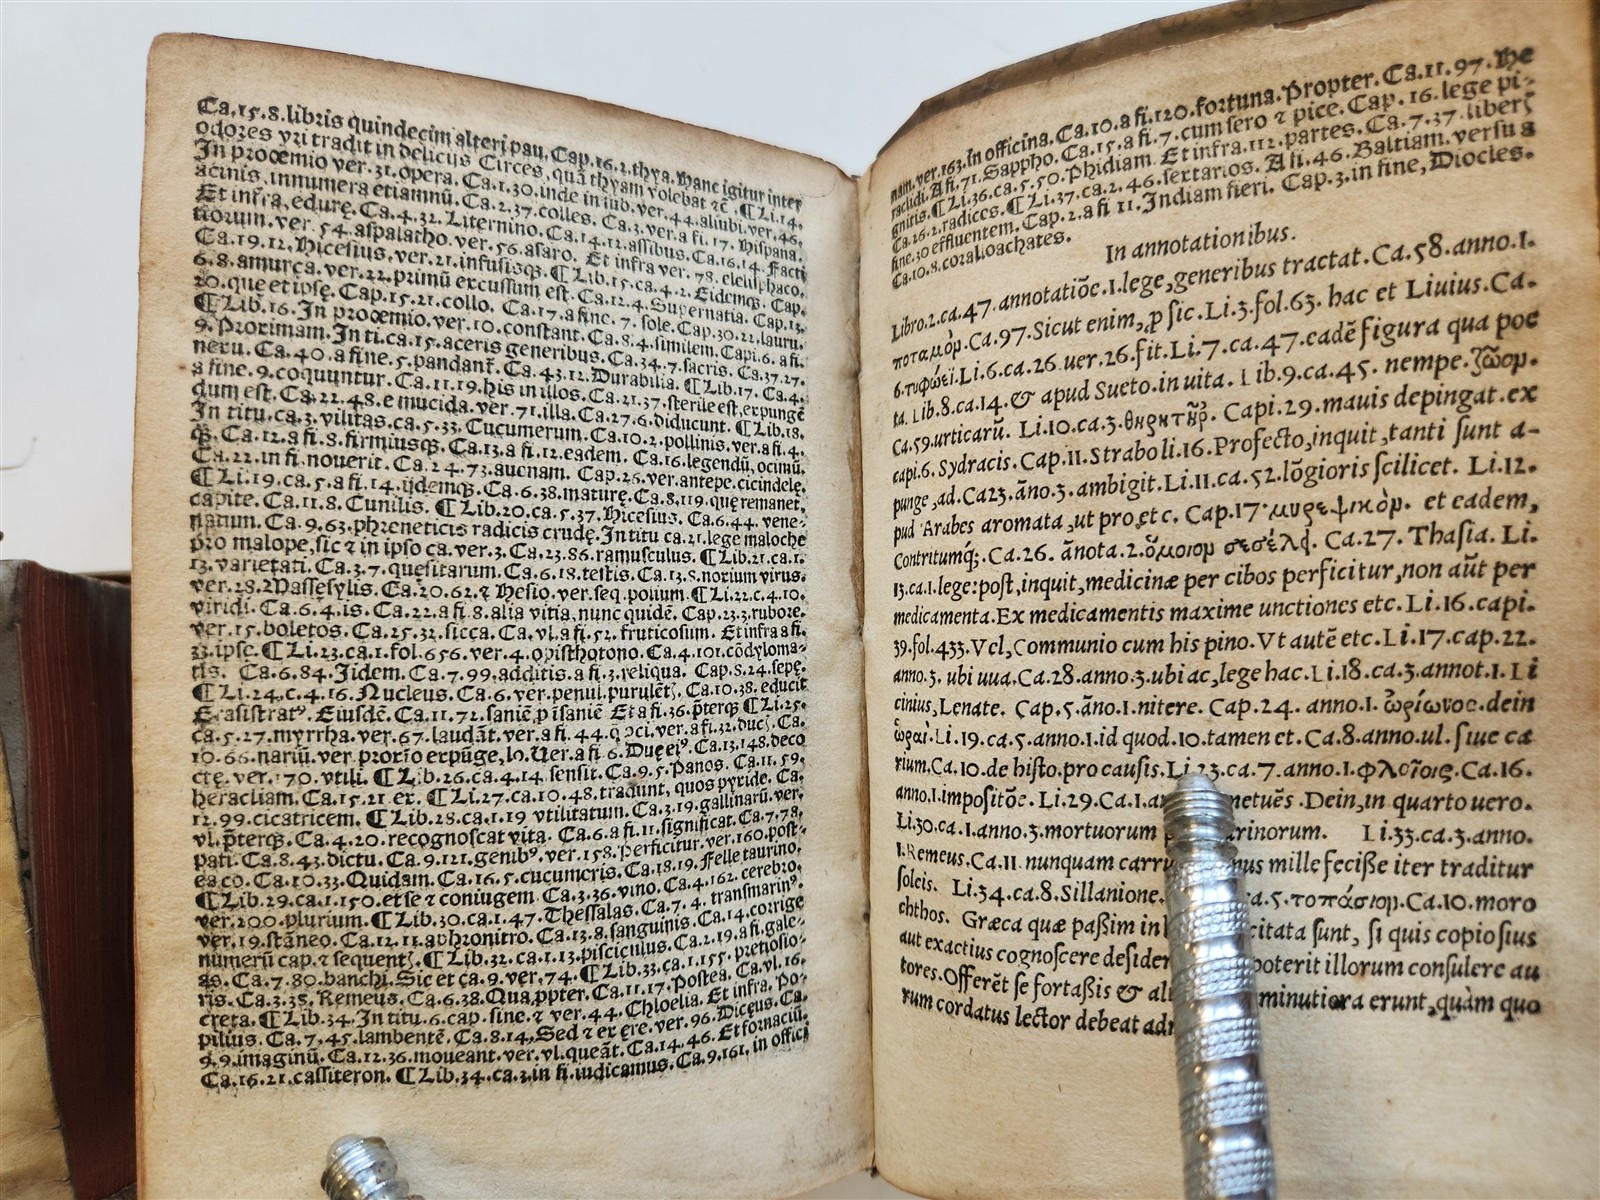 Ca.15.8.libris quindecim alteri pau. Cap.16.2.thya. Hanc igitur inter
odores vri tradit in delicijs Circes, quā thyam volebat ⁊c̄. ¶Li.14.
In proœmio ver.31.opera. Ca.1.30.inde in iub.ver.44.aliubi.ver.46.
acinis.innumera etiamnū. Ca.2.37.colles. Ca.3.ver.a fi.17. Hispana.
Et infra, edurę. Ca.4.32. Liternino. Ca.14.12.assibus. Ca.16.14. Facti
tiorum.ver.54.aspalatho.ver.56.asaro. Et infra ver.78. elelisphaco.
Ca.19.12. Hicesius.ver.21.infusisq;. ¶Lib.15.ca.4.2. Eidemq;. Cap.
6.8.amurca.ver.22.primū excussum est. Ca.12.4. Supernatia. Cap.13.
20.que et ipsę. Cap.15.21.collo. Ca.17.a fine.7.sole. Cap.30.22.lauru.
¶Lib.16. In proœmio.ver.10.constant. Ca.8.4.similem. Capi.6.a fi.
9.Proximam. In ti.ca.15.aceris generibus. Ca.34.7.sacris. Ca.37.27.
neru. Ca.40.a fine.5.pandant̄. Ca.43.12. Durabilia. ¶Lib.17. Ca.4.
a fine.9.coquuntur. Ca.11.19.his in illos. Ca.21.37.sterile est, expungē
dum est. Ca.22.48.e mucida.ver.71.illa. Ca.27.6.diducunt. ¶Lib.18.
In titu.ca.3.vilitas.ca.5.33. Cucumerum. Ca.10.2.pollinis.ver.a fi.4.
q;. Ca.12.a fi.8.firmiusq;. Ca.13.a fi.12.eadem. Ca.16.legendū, ocimū.
Ca.22.in fi.nouerit. Ca.24.73.auenam. Cap.26.ver.antepe.cicindelę.
¶Li.19.ca.5.a fi.14.ijdemq;. Ca.6.38.maturę. Ca.8.119.quę remanet.
capite. Ca.11.8. Cunilis. ¶Lib.20.ca.5.37. Hicesius. Ca.6.44. vene-
natum. Ca.9.63.phreneticis radicis crudę. In titu ca.21.lege maloche
pro malope, sic ⁊ in ipso ca.ver.3. Ca.23.86.ramusculus. ¶Lib.21.ca.1.
13.varietati. Ca.3.7.quęsitarum. Ca.6.18.testis. Ca.13.8.noxium virus.
ver.28.Massesylis. Ca.20.62.⁊ Hesio.ver.seq.polium. ¶Li.22.c.4.10.
viridi. Ca.6.4.is. Ca.22.a fi.8.alia vitia, nunc quidē. Cap.23.3.rubore.
ver.15.boletos. Ca.25.32.sicca. Ca.vl.a fi.52.fruticosum. Et infra a fi.
33.ipse. ¶Li.23.ca.1.fol.656.ver.4.opisthotono. Ca.4.101.cōdyloma-
tis. Ca.6.84. Iidem. Ca.7.99.additis.a fi.3.reliqua. Cap.8.24.sepę.
¶Li.24.c.4.16. Nucleus. Ca.6.ver.penul.purulēt. Ca.10.38.educit
Erasistratꝰ. Eiusdē. Ca.11.72.saniē, p isaniē Et a fi.36.p̄terq; ¶Li.25.
ca.5.27.myrrha.ver.67.laudāt.ver.a fi.44. ver.a fi.32. Ca.
10.66.nariū.ver proxio expūge, lo. Uer.a fi.6. Ca.13.148.deco
ctę.ver.170.vtili. ¶Lib.26.ca.4.14.sensit. Ca.9.5.Panos. Ca.11.59.
heracliam. Ca.15.21 ex. ¶Li.27.ca.10.48.tradunt, quos pyride. Ca.
12.99.cicatricem. ¶Lib.28.ca.1.19 vtilitatum. Ca.3.19.gallinarū.ver.
vl.p̄terq;. Ca.4.20.recognoscat vita. Ca.6.a fi.11.significat. Ca.7.74.
pati. Ca.8.43.dictu. Ca.9.121.genibꝰ.ver.158.perficitur.ver.160.post-
ea co. Ca.10.33.Quidam. Ca.16.5.cucumeris. Ca.18.19.Felle taurino.
¶Lib.29.ca.1.150.et se ⁊ coniugem Ca.3.36.vino. Ca.4.162.cerebro.
ver.200.plurium. ¶Lib.30.ca.1.47. Thessalas. Ca.7.4. transmarinꝰ.
ver.19.stāneo. Ca.12.11.aphronitro. Ca.13.8.sanguinis. Ca.14.corrige
numerū cap.⁊ sequent. ¶Lib.32.ca.1.13.pisciculus. Ca.2.19.a fi.gale-
as. Ca.7.80.banchi. Sic et ca.9.ver.74. ¶Lib.33.ca.1.155. pretiosio-
ris. Ca.3.35. Remeus. Ca.6.38.Qua ppter. Ca.11.17.Postea. Ca.vl.16.
creta. ¶Lib.34. In titu.6.cap.sine.⁊ ver.44. Chloelia. Et infra, Po-
pilius. Ca.7.45.lambentē. Ca.8.14, Sed ⁊ ex ęre.ver.96.Dicęus. Ca.
9.9.imaginū. Ca.12.36.moueant.ver.vl.queāt. Ca.14.46. Et fornaciū.
Ca.16.21.cassiteron. ¶Lib.34.ca.2.in fi.iudicamus. Ca.9.161.in offici
nam.ver.163.In officina. Ca.10.a fi.120.fortuna.Propter. Ca.11.97.He
raclidi. A fi.71.Sappho. Ca.15.a fi.7.cum sero ⁊ pice. Cap.16.lege pi-
gnitis. ¶Li.36.ca.5.50.Phidiam. Et infra.112.partes. Ca.7.37.liber
Ca.26.2.radices. ¶Li.37.ca.2.46.sextarios. A fi.46. Baltiam. versu a
fine.30 effluentem. Cap.2.a fi 11.Indiam fieri. Cap.3.in fine, Diocles.
Ca.10.8.coralloachates.
In annotationibus.
Libro.2.ca.47.annotatiōe.1.lege, generibus tractat. Ca.58.anno.1.
ποταμὸρ. Ca.97.Sicut enim, p̱ sic. Li.3.fol.63. hac et Liuius. Ca.
6.τυφώεϊ. Li.6.ca.26 uer.26.fit. Li.7.ca.47.eadē figura qua poe
ta. Lib.8.ca.14. & apud Sueto.in uita. Lib.9.ca.45. nempe. ζῶορ.
Ca.59.urticarū. Li.10.ca.3.θηρητῆρ. Capi.29.mauis depingat.ex
capi.6. Sydracis. Cap.11.Strabo li.16. Profecto, inquit, tanti sunt a-
punge, ad. Ca23.āno.3. ambigit. Li.11.ca.52.lōgioris scilicet. Li.12.
pud Arabes aromata, ut pro, etc. Cap.17 μυρεψικὸρ. et eadem,
Contritumq́;. Ca.26. ānota.2.ὅμοιορ σεσέλῳ. Ca.27. Thasia. Li.
13.ca.1.lege: post, inquit, medicinæ per cibos perficitur, non aūt per
medicamenta. Ex medicamentis maxime unctiones etc. Li.16.capi.
39.fol.433.Vel, Communio cum his pino. Vt autē etc. Li.17.cap.22.
anno.3. ubi uua. Ca.28.anno.3.ubi ac, lege hac. Li.18.ca.3.annot.1. Li
cinius, Lenate. Cap.5.āno.1.nitere. Cap.24. anno.1. ὠρίωνος.dein
ὧραί. Li.19.ca.5.anno.1.id quod.10.tamen et. Ca.8.anno.ul. siue cæ
rium. Ca.10.de histo.pro causis. Li.23.ca.7.anno.1.φλοῖοις. Ca.16.
anno.1.impositōe. Li.29.Ca.1.an netuēs. Dein, in quarto uero.
Li.30.ca.1.anno.3.mortuorum p rinorum. Li.33.ca.3.anno.
1.Remeus. Ca.11 nunquam carru nus mille feciße iter traditur
soleis. Li.34.ca.8. Sillanione. ca.5.τοπάσιορ. Ca.10.moro
chthos. Græca quæ paßim in l citata sunt, si quis copiosius
aut exactius cognoscere desider poterit illorum consulere au
tores. Offerēt se fortaßis & ali minutiora erunt, quàm quo
rum cordatus lector debeat adm